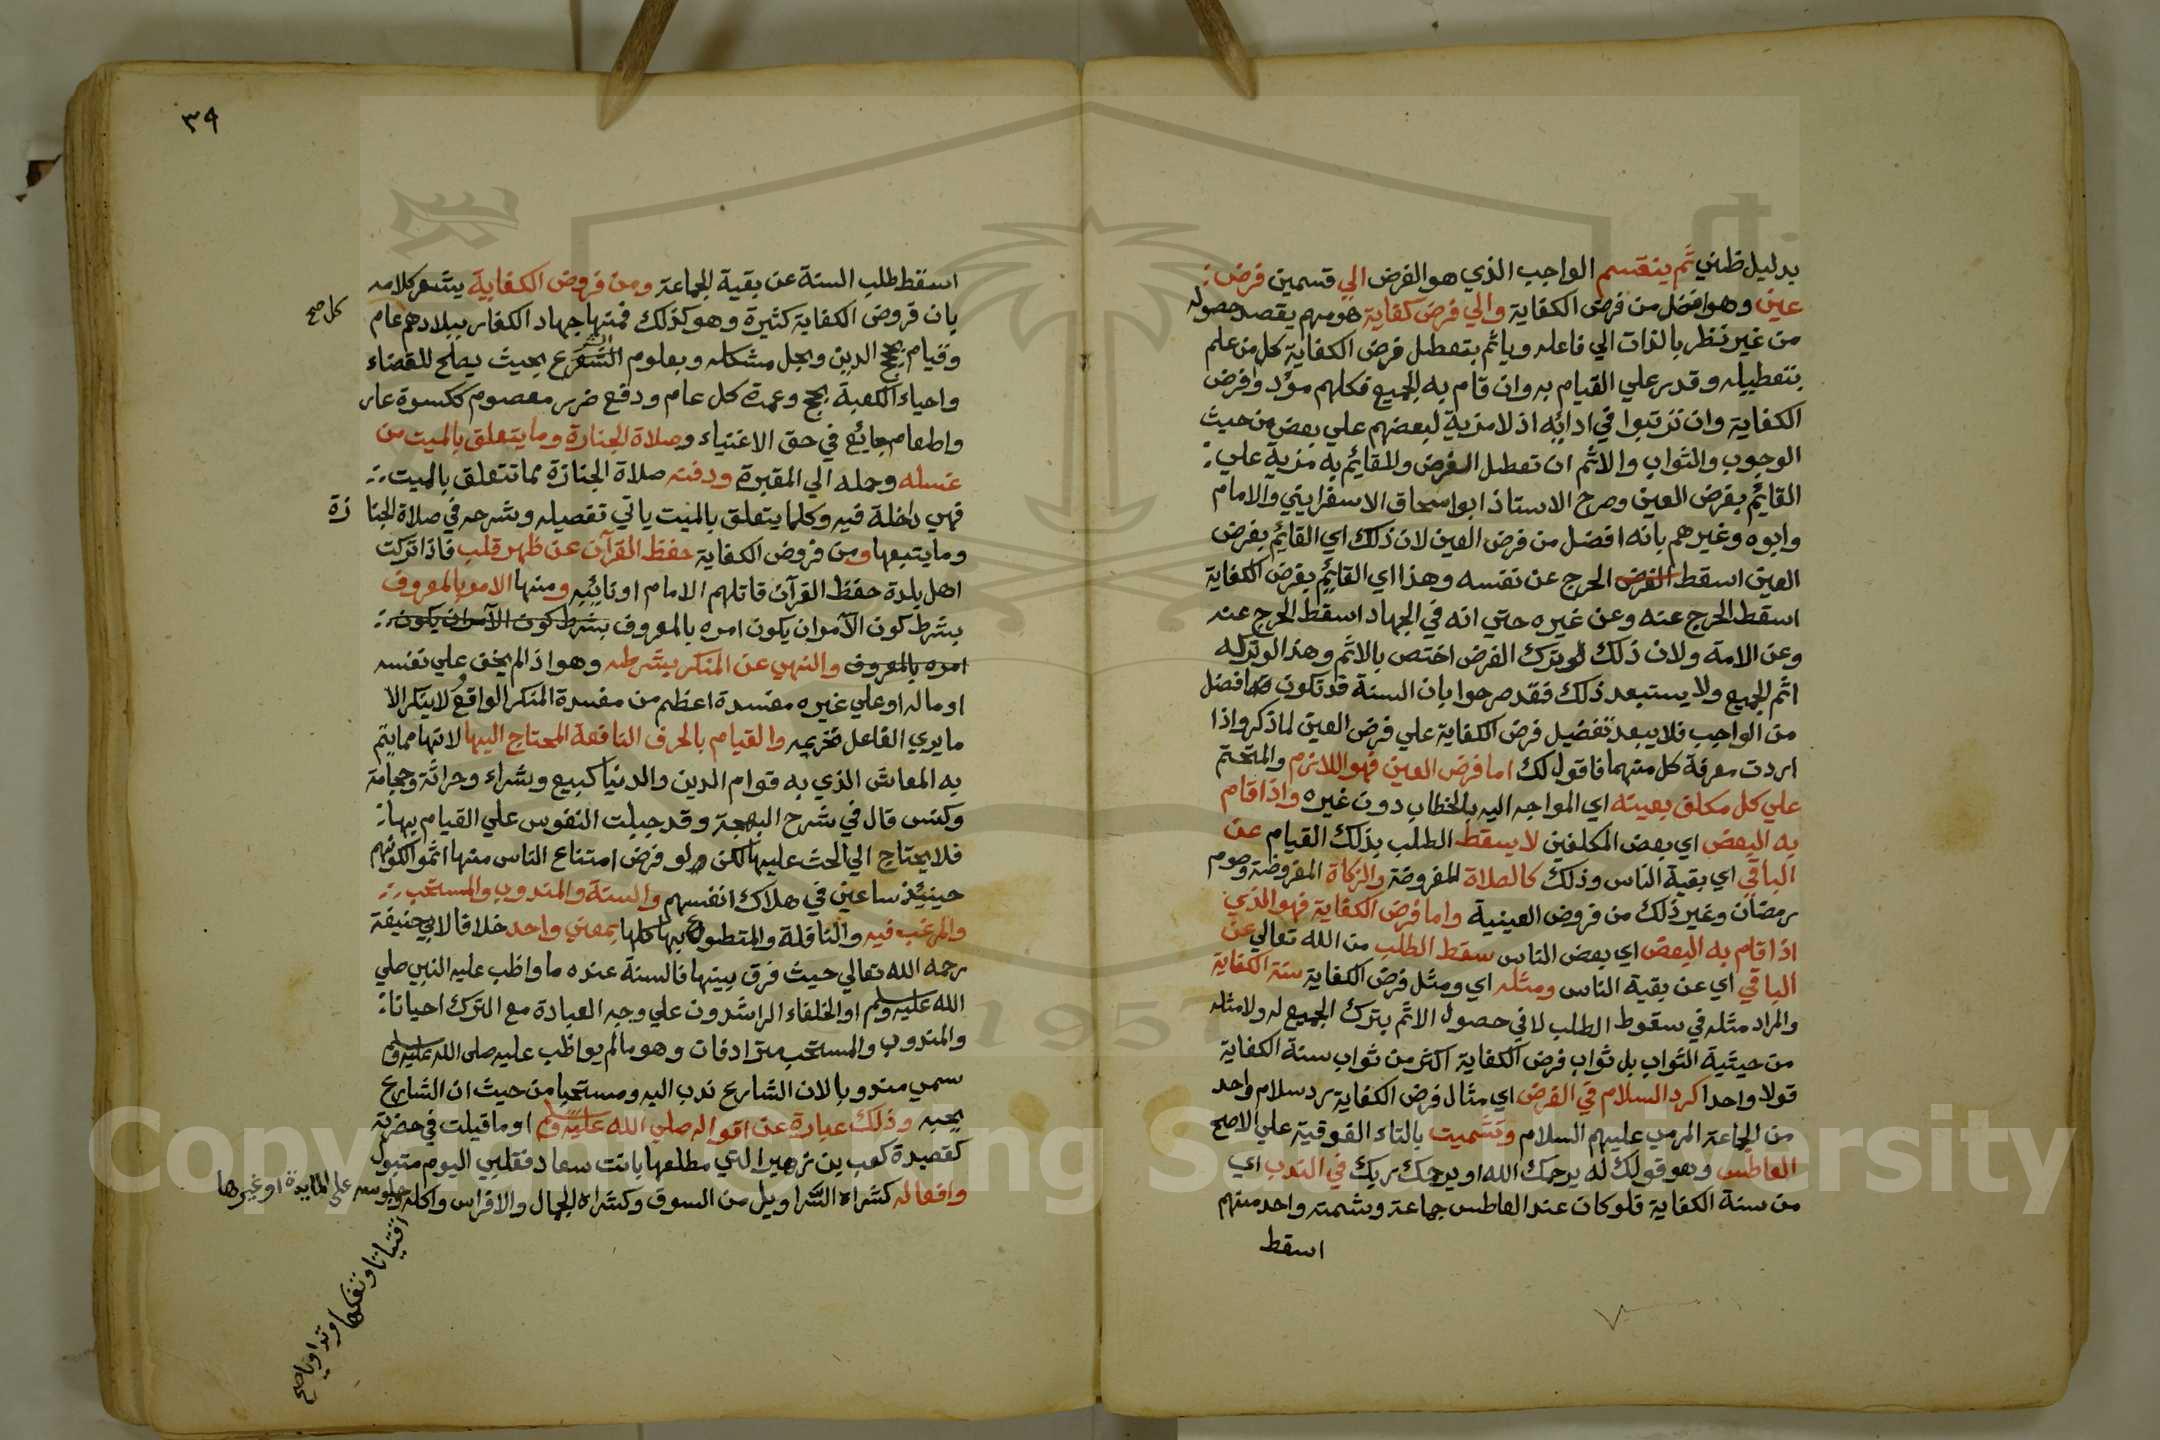 بدليل ظني ثم ينقسم الواجب الذي هو الفرض الي قسمين فرض
عين وهو افضل من فرض الكفاية والي فرض كفاية هو مهم يقصد حصوله
من غير نظر بالذات الي فاعله وياثم بتعطيل فرض الكفاية كل من علم
بتعطيله وقدر علي القيام به وان قام به الجميع فكلهم مؤد فرض
الكفاية وان ترتبوا في ادائه اذ لا مزية لبعضهم علي بعض من حيث
الوجوب والثواب والاثم ان تعطل الفرض وللقائم به مزية علي
القائم بفرض العين وصرح الاستاذ ابو اسحاق الاسفرايني والامام
وابوه وغيرهم بانه افضل من فرض العين لان ذلك اي القائم بفرض
العين اسقط الفرض الحرج عن نفسه وهذا اي القائم بفرض الكفاية
اسقط الحرج عنه وعن غيره حتي انه في الجهاد اسقط الحرج عنه
وعن الامة ولان ذلك لو ترك الفرض اختص بالاثم وهذا لو تركه
اثم الجميع ولا يستبعد ذلك فقد صرحوا بان السنة قد تكون افضل
من الواجب فلا يبعد تفضيل فرض الكفاية علي فرض العين لما ذكر واذا
اردت معرفة كل منهما فاقول لك اما فرض العين فهو اللازم والمتحتم
علي كل مكلف بعينه اي المواجه اليه بالخطاب دون غيره واذا قام
به البعض اي بعض المكلفين لا يسقط الطلب بذلك القيام عن
الباقي اي بقية الناس وذلك كالصلاة المفروضة والزكاة المفروضة وصوم
رمضان وغير ذلك من فروض العينية واما فرض الكفاية فهو الذي
اذا قام به البعض اي بعض الناس سقط الطلب من الله تعالي عن
الباقي اي عن بقية الناس ومثله اي ومثل فرض الكفاية سنة الكفاية
والمراد مثله في سقوط الطلب لا في حصول الاثم بترك الجميع له ولا مثله
من حيثية الثواب بل ثواب فرض الكفاية اكثر من ثواب سنة الكفاية
قولا واحدا كرد السلام في الفرض اي مثال فرض الكفاية رد سلام واحد
من الجماعة المرمي عليهم السلام وتشميت بالتاء الفوقية علي الاصح
العاطس وهو قولك له يرحمك الله او يرحمك ربك في الندب اي
من سنة الكفاية فلو كان عند العاطس جماعة وشمته واحد منهم
اسقط
٣٩
اسقط طلب السنة عن بقية الجماعة ومن فروض الكفاية يشعر كلامه
بان فروض الكفاية كثيرة وهو كذلك فمنها جهاد الكفار ببلادهم عام
كل صح
وقيام بحجج الدين وبحل مشكله وبعلوم الشرع بحيث يصلح للقضاء
واحياء الكعبة بحج وعمرة كل عام ودفع ضرر معصوم ككسوة عار
واطعام جايع في حق الاغنياء وصلاة الجنازة وما يتعلق بالميت من
غسله وحمله الي المقبرة ودفنه صلاة الجنازة مما تتعلق بالميت
فهي داخلة فيه وكلما يتعلق بالميت ياتي تفصيله وشرحه في صلاة الجنا زة
وما يتبعها ومن فروض الكفاية حفظ القرآن عن ظهر قلب فاذا تركت
اهل بلدة حفظ القرآن قاتلهم الامام او نائبه ومنها الامر بالمعروف
بشرط كون الآمر ان يكون امره بالمعروف بشرط كون الآمر ان يكون
امره بالمعروف والنهي عن المنكر بشرطه وهو اذا لم يخف علي نفسه
او ماله او علي غيره مفسدة اعظم من مفسدة المنكر الواقع ولا ينكر الا
ما يري الفاعل تحريمه والقيام بالحرف النافعة المحتاج اليها لانها مما يتم
به المعاش الذي به قوام الدين والدنيا كبيع وشراء وحراثة وحجامة
وكنس قال في شرح البهجة وقد جبلت النفوس علي القيام بها
فلا يحتاج الي الحث عليها لكن لو فرض امتناع الناس منها اثموا لكونهم
حينئذ ساعين في هلاك انفسهم والسنة والمندوب والمستحب
والمرغب فيه والنافلة والمتطوع بها كلها بمعني واحد خلافا لابي حنيفة
رحمه الله تعالي حيث فرق بينها فالسنة عنده ما واظب عليه النبي صلي
الله عليه وسلم او الخلفاء الراشدون علي وجه العبادة مع الترك احيانا
والمندوب والمستحب مترادفات وهو ما لم يواظب عليه صلى الله عليه وسلم
سمي مندوبا لان الشارع ندب اليه ومستحبا من حيث ان الشارع
يحبه وذلك عبارة عن اقواله صلي الله عليه وسلم او ما قيلت في حضرته
كقصيدة كعب بن زهير التي مطلعها بانت سعاد فقلبي اليوم متبول
وافعاله كشراه السراويل من السوق وكشراه الجمال والافراس واكله وجلوسه علي المايدة او غيرها
اقتياتا وتفكها وتداويا صح
Copyright © King Saud University
1957